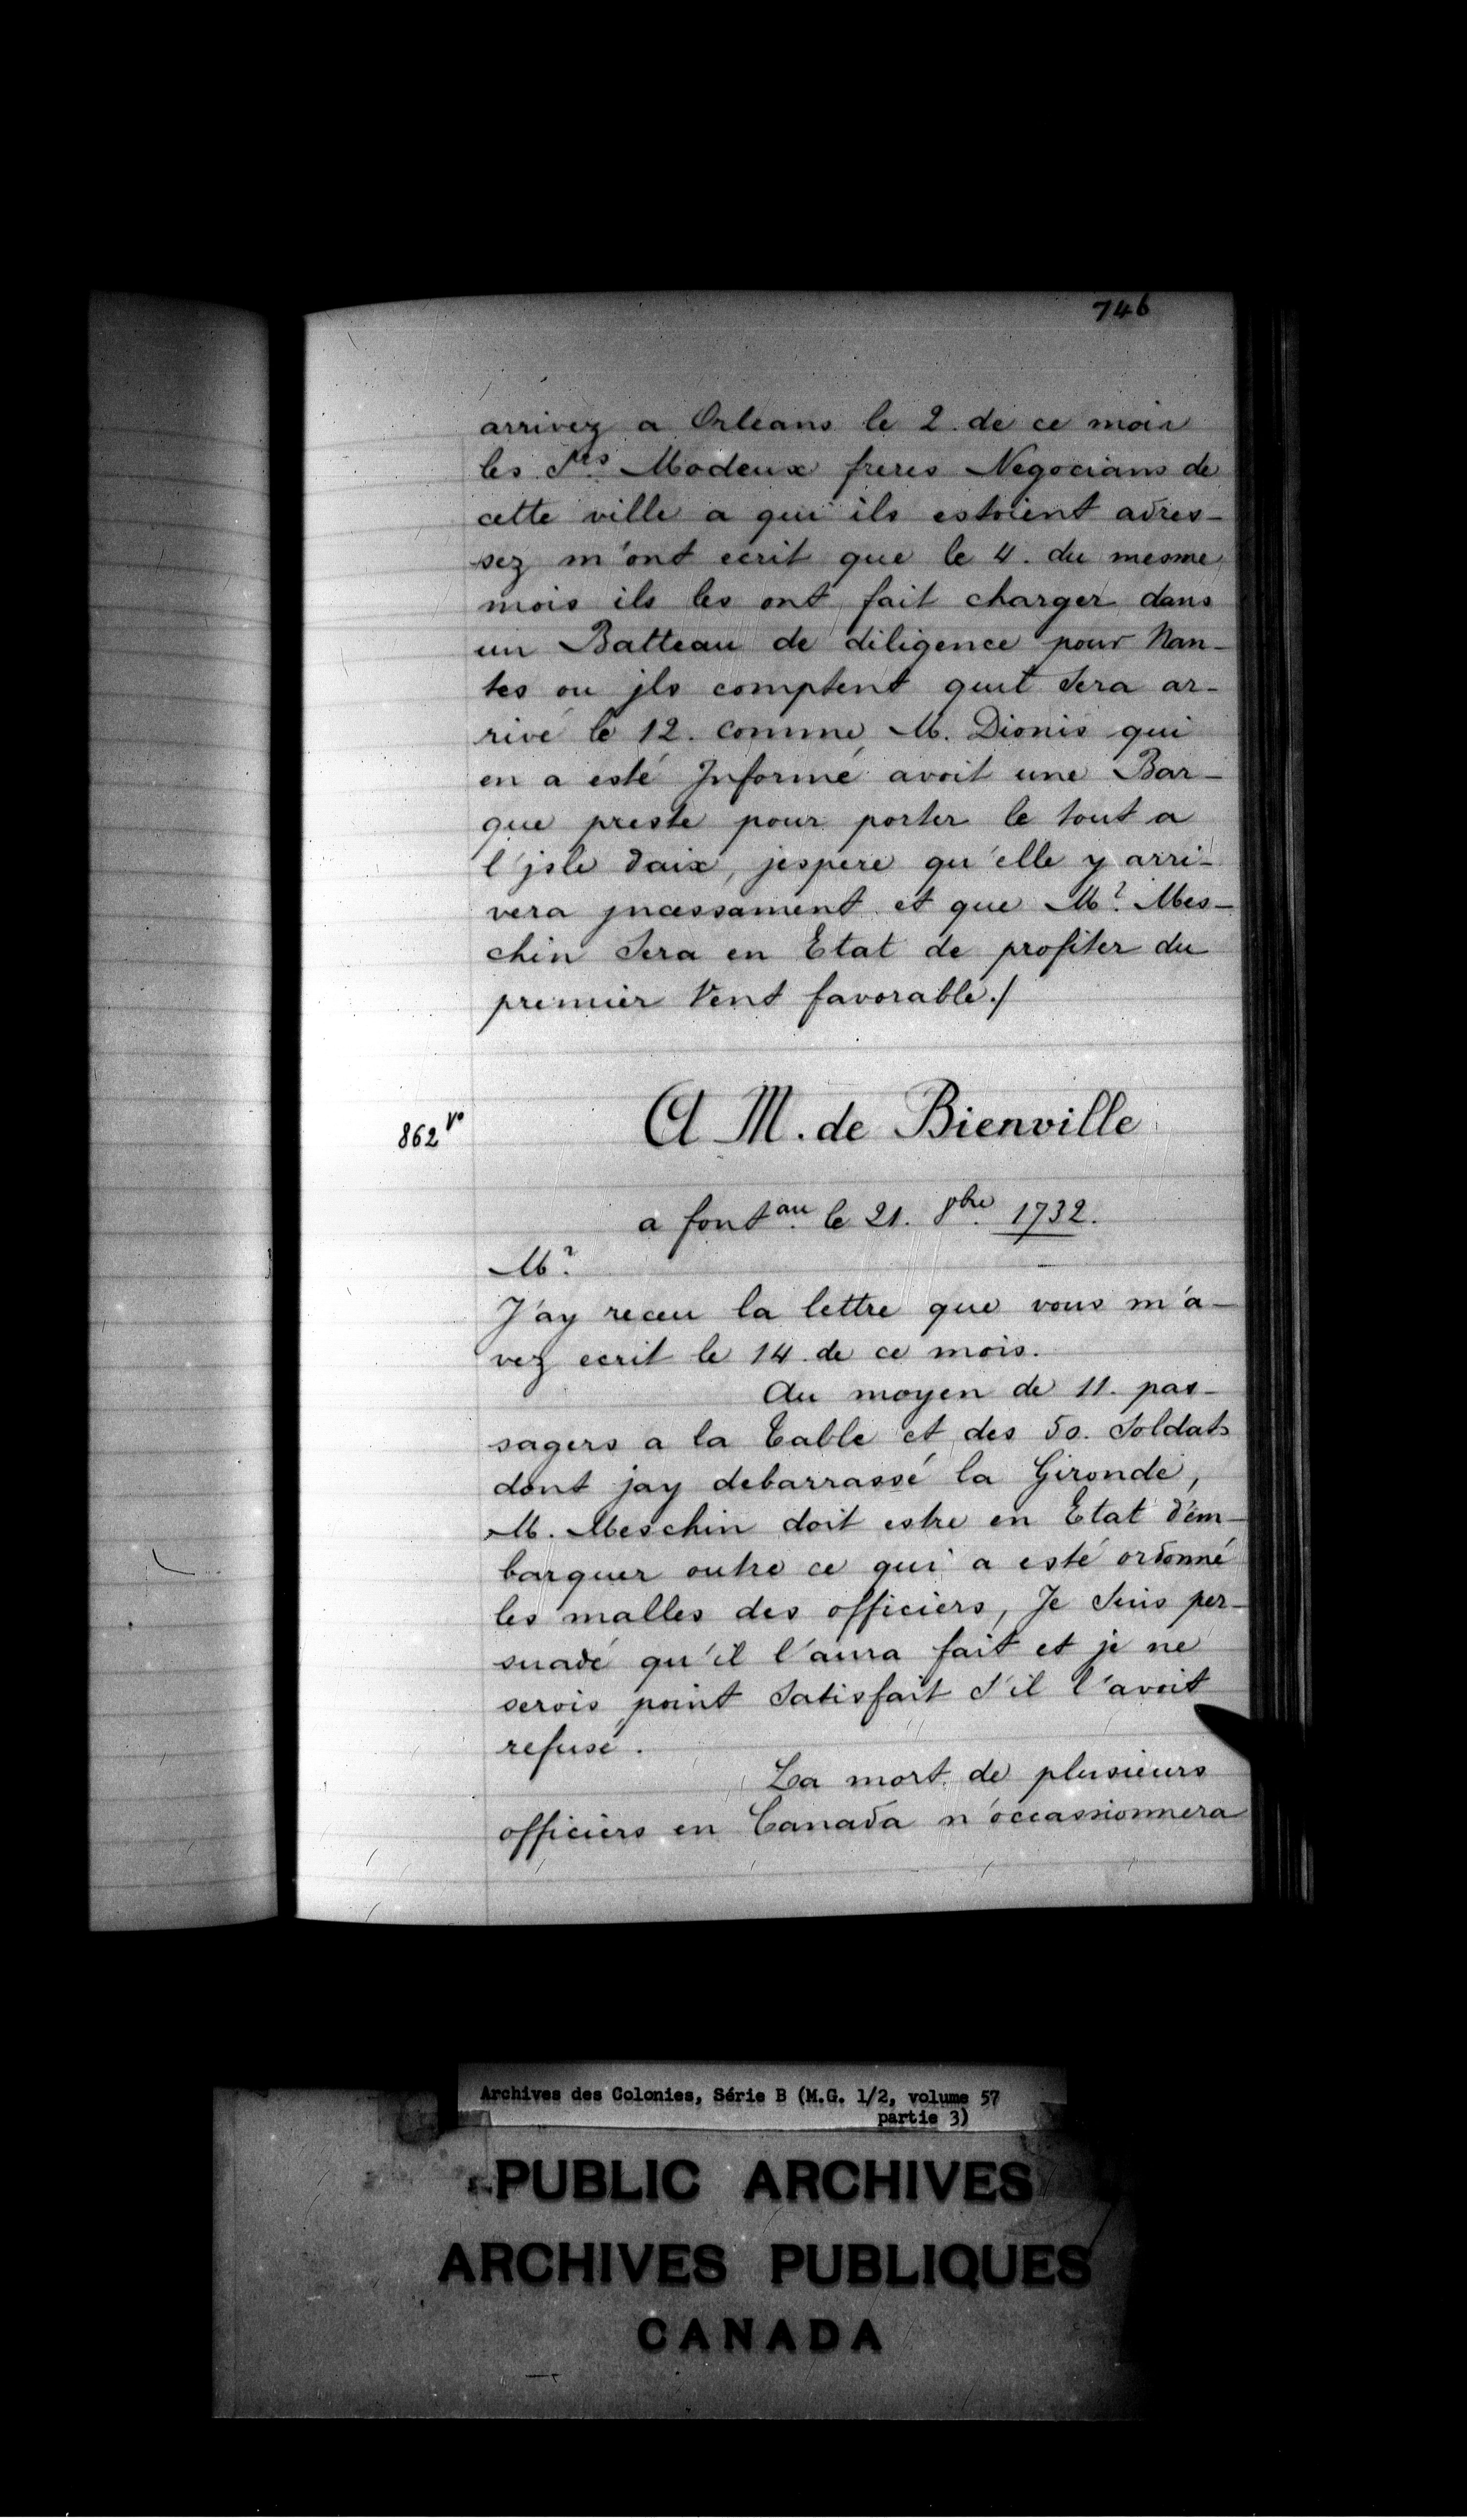 746
arrivez a Orleans le 2. de ce mois
les Srs Modeux freres Negocians de
cette ville a qui ils estoient adres-
sez m'ont ecrit que le 4. du mesme
mois ils les ont fait charger dans
un Batteau de diligence pour Nan-
tes ou jls comptent quil sera ar-
rivé le 12. comme M. Dionis qui
en a esté Informé avoit une Bar-
que preste pour porter le tout a
l'jsle daix, jespere qu'elle y arri-
vera jncessament et que Mr. Mes-
chin sera en Etat de profiter du
premier Vent favorable./
862 vo
A M. de Bienville
a fontau le 21. 8bre 1732.
Mr.
J'ay receu la lettre que vous m'a-
vez ecrit le 14. de ce mois.
Au moyen de 11. pas-
sagers a la Table et des 50. Soldats
dont jay debarrassé la Gironde,
M. Meschin doit estre en Etat d'em-
barquer outre ce qui a esté ordonné
les malles des officiers, Je suis per-
suadé qu'il l'aura fait et je ne
serois point satisfait s'il l'avoit
refusé.
La mort de plusieurs
officiers en Canada n'occassionnera
Archives des Colonies, Série B (M.G. 1/2, volume 57
partie 3)
PUBLIC ARCHIVES
ARCHIVES PUBLIQUES
CANADA